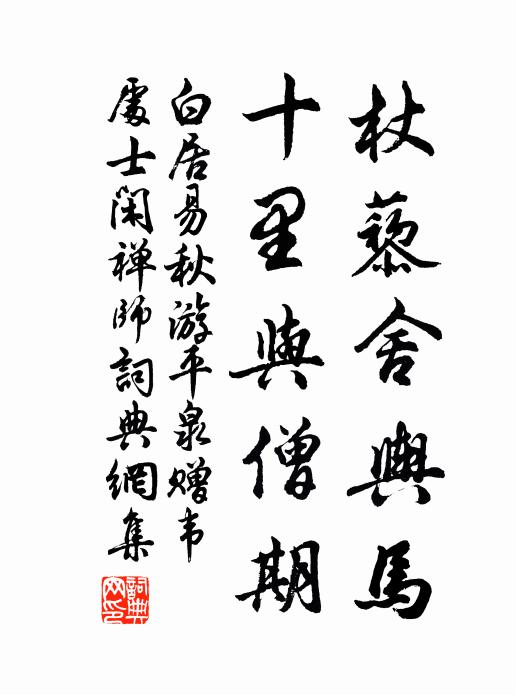 杖藜舍輿馬
十里與僧期
白居易秋游平泉赠韦
處士閑禅師詞典網集
詞典网印